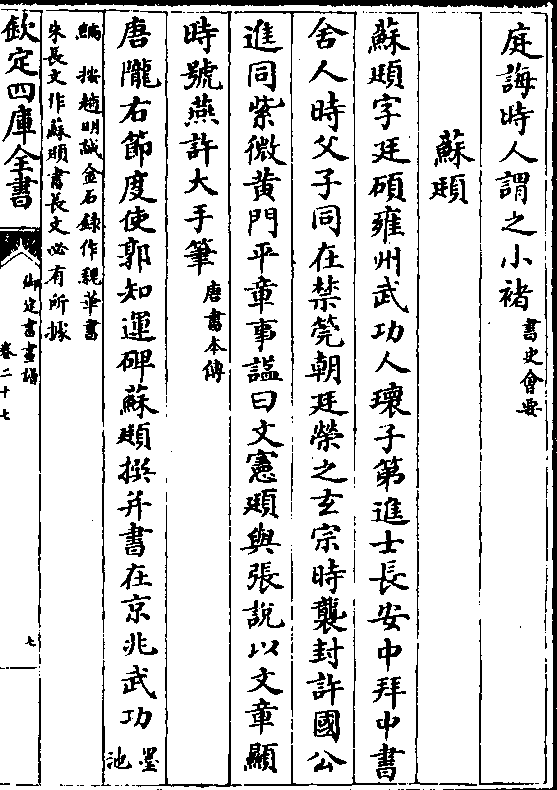 庭誨時人謂之小褚書史會要
蘇頲
蘇頲字廷碩雍州武功人瓌子第進士長安中拜中書
舍人時父子同在禁筦朝廷榮之玄宗時襲封許國公
進同紫微黄門平章事諡曰文憲頲與張說以文章顯
時號燕許大手筆唐書本傳
唐隴右節度使郭知運碑蘇頲撰并書在京兆武功墨池
編 按趙明誠金石錄作親華書
朱長文作蘇頲書長文必有所據
欽定四庫全書
御定書畫譜
卷二十七
七